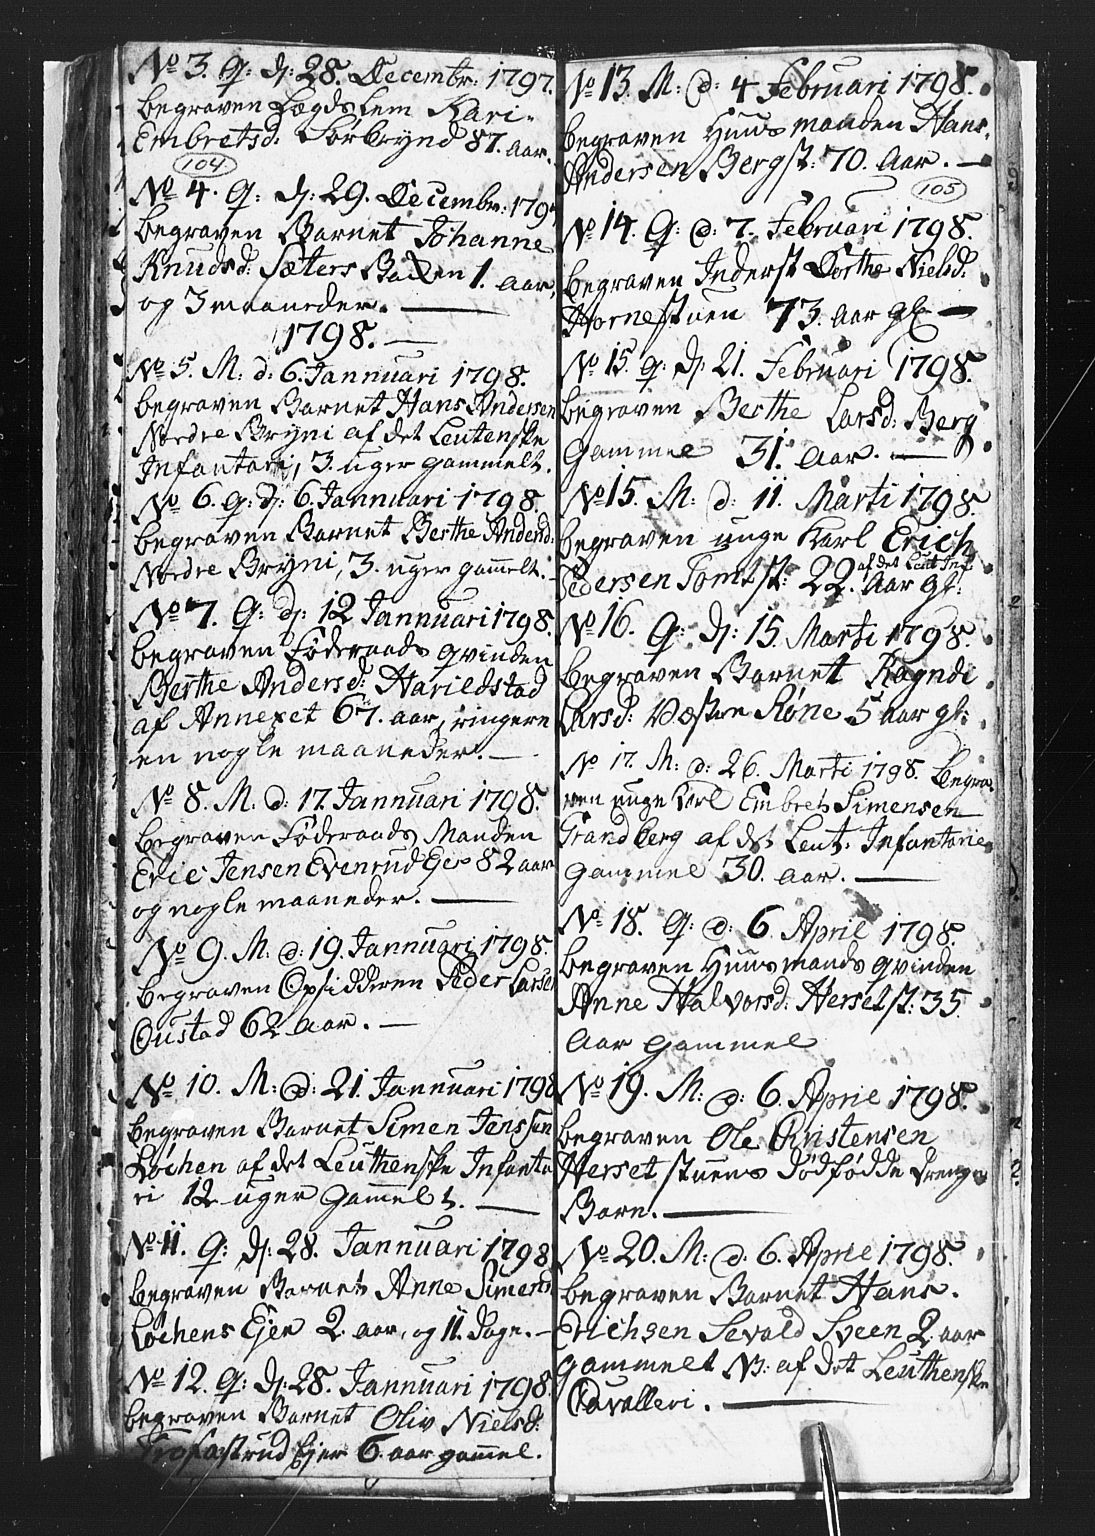 No 3. Q: d: 28. Decembr: 1797.
begraven Lægds Lem Kari
Embretsd: Sørbrynd 87. aar.
104
No 4. Q: d: 29. Decembr: 1797
begraven Barnet Johanne
Knudsd: Sæters Backen 1. aar,
og 3 maaneder.
1798.
No 5. M: d: 6. Jannuari 1798.
begraven Barnet Hans Andersen
Nordre Bryni af det Leutenske
Infantari, 3. uger gammelt.
No 6. Q: d: 6. Jannuari 1798.
begraven Barnet Berthe Andersd:
Nordre Bryni, 3. uger gammelt.
No 7. Q: d: 12 Jannuari 1798.
begraven Føderaads qvinden
Berthe Andersd: Harildstad
af Annexet 67. aar, ringere
en nogle maaneder.
No 8. M: d: 17. Jannuari 1798.
begraven Føderaads Manden
Eric Jensen Evenrud Eje 82 aar
og nogle maaneder.
No 9. M: d: 19. Jannuari 1798.
begraven Opsidderen Peder Larsen
Oustad 62 aar.
No 10. M: d: 21. Jannuari 1798
begraven Barnet Simen Jenssen
Løchen af det Leuthenske Infanta
ri 12 uger gammelt.
No 11. Q: d: 28. Jannuari 1798
begraven Barnet Anne Simensd
Løchens Ejen 2. aar, og 11. dage.
No 12. Q: d: 28. Jannuari 1798.
begraven Barnet Oliv Nielsd:
Trofastrud Ejer 6. aar gammel.
No 13. M: d: 4 Februari 1798.
begraven Huus manden Hans
Andersen Bergst: 70. Aar.
105
No 14. Q: d: 7. Februari 1798.
begraven Inderst Dorthe Nielsd:
Hornestuen 73. aar gl:
No 15. Q: d: 21. Februari 1798.
begraven Berthe Larsd: Berg
gammel 31. aar.
No 15. M: d: 11. Marti 1798.
begraven unge Karl Erich
Pedersen Tomtst: 22. af det Leut Inf. Aar gl:
No 16. Q: d: 15. Marti 1798.
begraven Barnet Ragndi
Larsd: Væstre Røne 5 aar gl:
No 17. M: d: 26. Marti 1798. begra
ven unge Karl Embret Simensen
Grandberg af det Leut. Infantarie
gammel 30. aar.
No 18. Q: d: 6. April 1798.
begraven Huusmands qvinden
Anne Halvorsd: Hersetst: 35
Aar gammel
No 19. M: d: 6. April 1798.
begraven Ole Christensen
Herset stuens dødfødde drenge
Barn.
No 20. M: d: 6. April 1798.
begraven Barnet Hans
Erichsen Sevald Sveen 2. aar
gammelt NB: af det Leuthenske
Cavalleri.